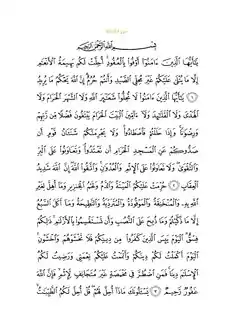 بِسْمِ اللَّهِ الرَّحْمَٰنِ الرَّحِيمِ
يَٰٓأَيُّهَا الَّذِينَ ءَامَنُوٓا۟ أَوْفُوا۟ بِالْعُقُودِ أُحِلَّتْ لَكُم بَهِيمَةُ الْأَنْعَٰمِ
إِلَّا مَا يُتْلَىٰ عَلَيْكُمْ غَيْرَ مُحِلِّى الصَّيْدِ وَأَنتُمْ حُرُمٌ إِنَّ اللَّهَ يَحْكُمُ مَا يُرِيدُ
١ يَٰٓأَيُّهَا الَّذِينَ ءَامَنُوا۟ لَا تُحِلُّوا۟ شَعَٰٓئِرَ اللَّهِ وَلَا الشَّهْرَ الْحَرَامَ وَلَا
الْهَدْىَ وَلَا الْقَلَٰٓئِدَ وَلَآ ءَآمِّينَ الْبَيْتَ الْحَرَامَ يَبْتَغُونَ فَضْلًا مِّن رَّبِّهِمْ
وَرِضْوَٰنًا وَإِذَا حَلَلْتُمْ فَاصْطَادُوا۟ وَلَا يَجْرِمَنَّكُمْ شَنَـَٔانُ قَوْمٍ أَن
صَدُّوكُمْ عَنِ الْمَسْجِدِ الْحَرَامِ أَن تَعْتَدُوا۟ وَتَعَاوَنُوا۟ عَلَى الْبِرِّ
وَالتَّقْوَىٰ وَلَا تَعَاوَنُوا۟ عَلَى الْإِثْمِ وَالْعُدْوَٰنِ وَاتَّقُوا۟ اللَّهَ إِنَّ اللَّهَ شَدِيدُ
الْعِقَابِ ٢ حُرِّمَتْ عَلَيْكُمُ الْمَيْتَةُ وَالدَّمُ وَلَحْمُ الْخِنزِيرِ وَمَآ أُهِلَّ لِغَيْرِ
اللَّهِ بِهِۦ وَالْمُنْخَنِقَةُ وَالْمَوْقُوذَةُ وَالْمُتَرَدِّيَةُ وَالنَّطِيحَةُ وَمَآ أَكَلَ السَّبُعُ
إِلَّا مَا ذَكَّيْتُمْ وَمَا ذُبِحَ عَلَى النُّصُبِ وَأَن تَسْتَقْسِمُوا۟ بِالْأَزْلَٰمِ ذَٰلِكُمْ
فِسْقٌ الْيَوْمَ يَئِسَ الَّذِينَ كَفَرُوا۟ مِن دِينِكُمْ فَلَا تَخْشَوْهُمْ وَاخْشَوْنِ
الْيَوْمَ أَكْمَلْتُ لَكُمْ دِينَكُمْ وَأَتْمَمْتُ عَلَيْكُمْ نِعْمَتِى وَرَضِيتُ لَكُمُ
الْإِسْلَٰمَ دِينًا فَمَنِ اضْطُرَّ فِى مَخْمَصَةٍ غَيْرَ مُتَجَانِفٍ لِّإِثْمٍ فَإِنَّ اللَّهَ
غَفُورٌ رَّحِيمٌ ٣ يَسْـَٔلُونَكَ مَاذَآ أُحِلَّ لَهُمْ قُلْ أُحِلَّ لَكُمُ الطَّيِّبَٰتُ